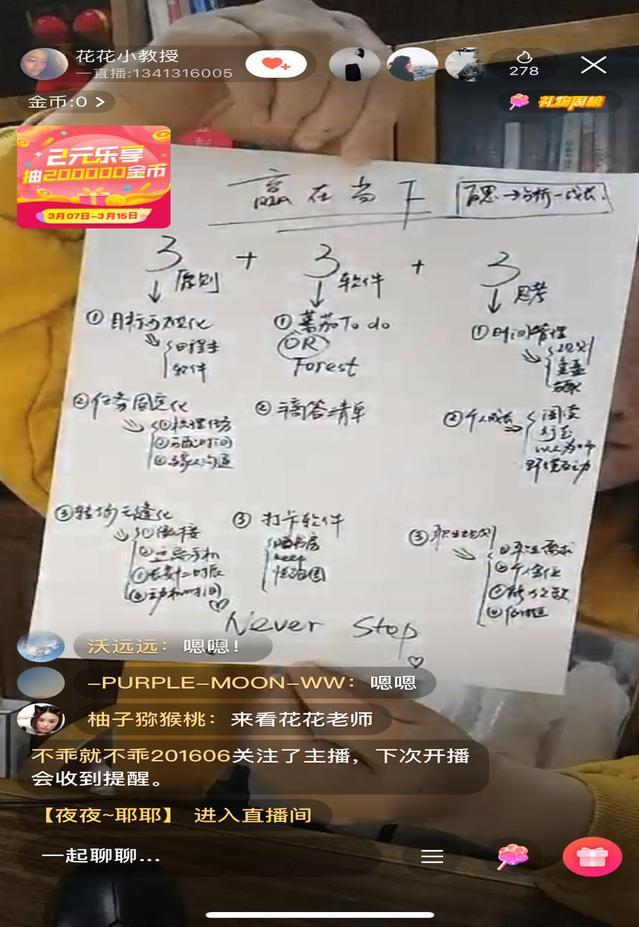 花花小教授
一直播:1341316005
278
金币:0 >
礼物周榜
2元乐享
抽200000金币
3月07日-3月15日
赢在当下
→分析→成长
3 + 3 + 3
原则
软件
思考
①目标可视化
日程本
软件
②任务固定化
①梳理任务
②匹配时间
③与家人沟通
③转场无缝化
①番茄To do
OR
Forest
②滴答清单
③打卡软件
keep
①时间管理
②个人成长
阅读
环境互动
③职业规划
Never Stop
沃远远：嗯嗯！
-PURPLE-MOON-WW：嗯嗯
柚子猕猴桃：来看花花老师
不乖就不乖201606关注了主播，下次开播
会收到提醒。
【夜夜~耶耶】 进入直播间
一起聊聊...